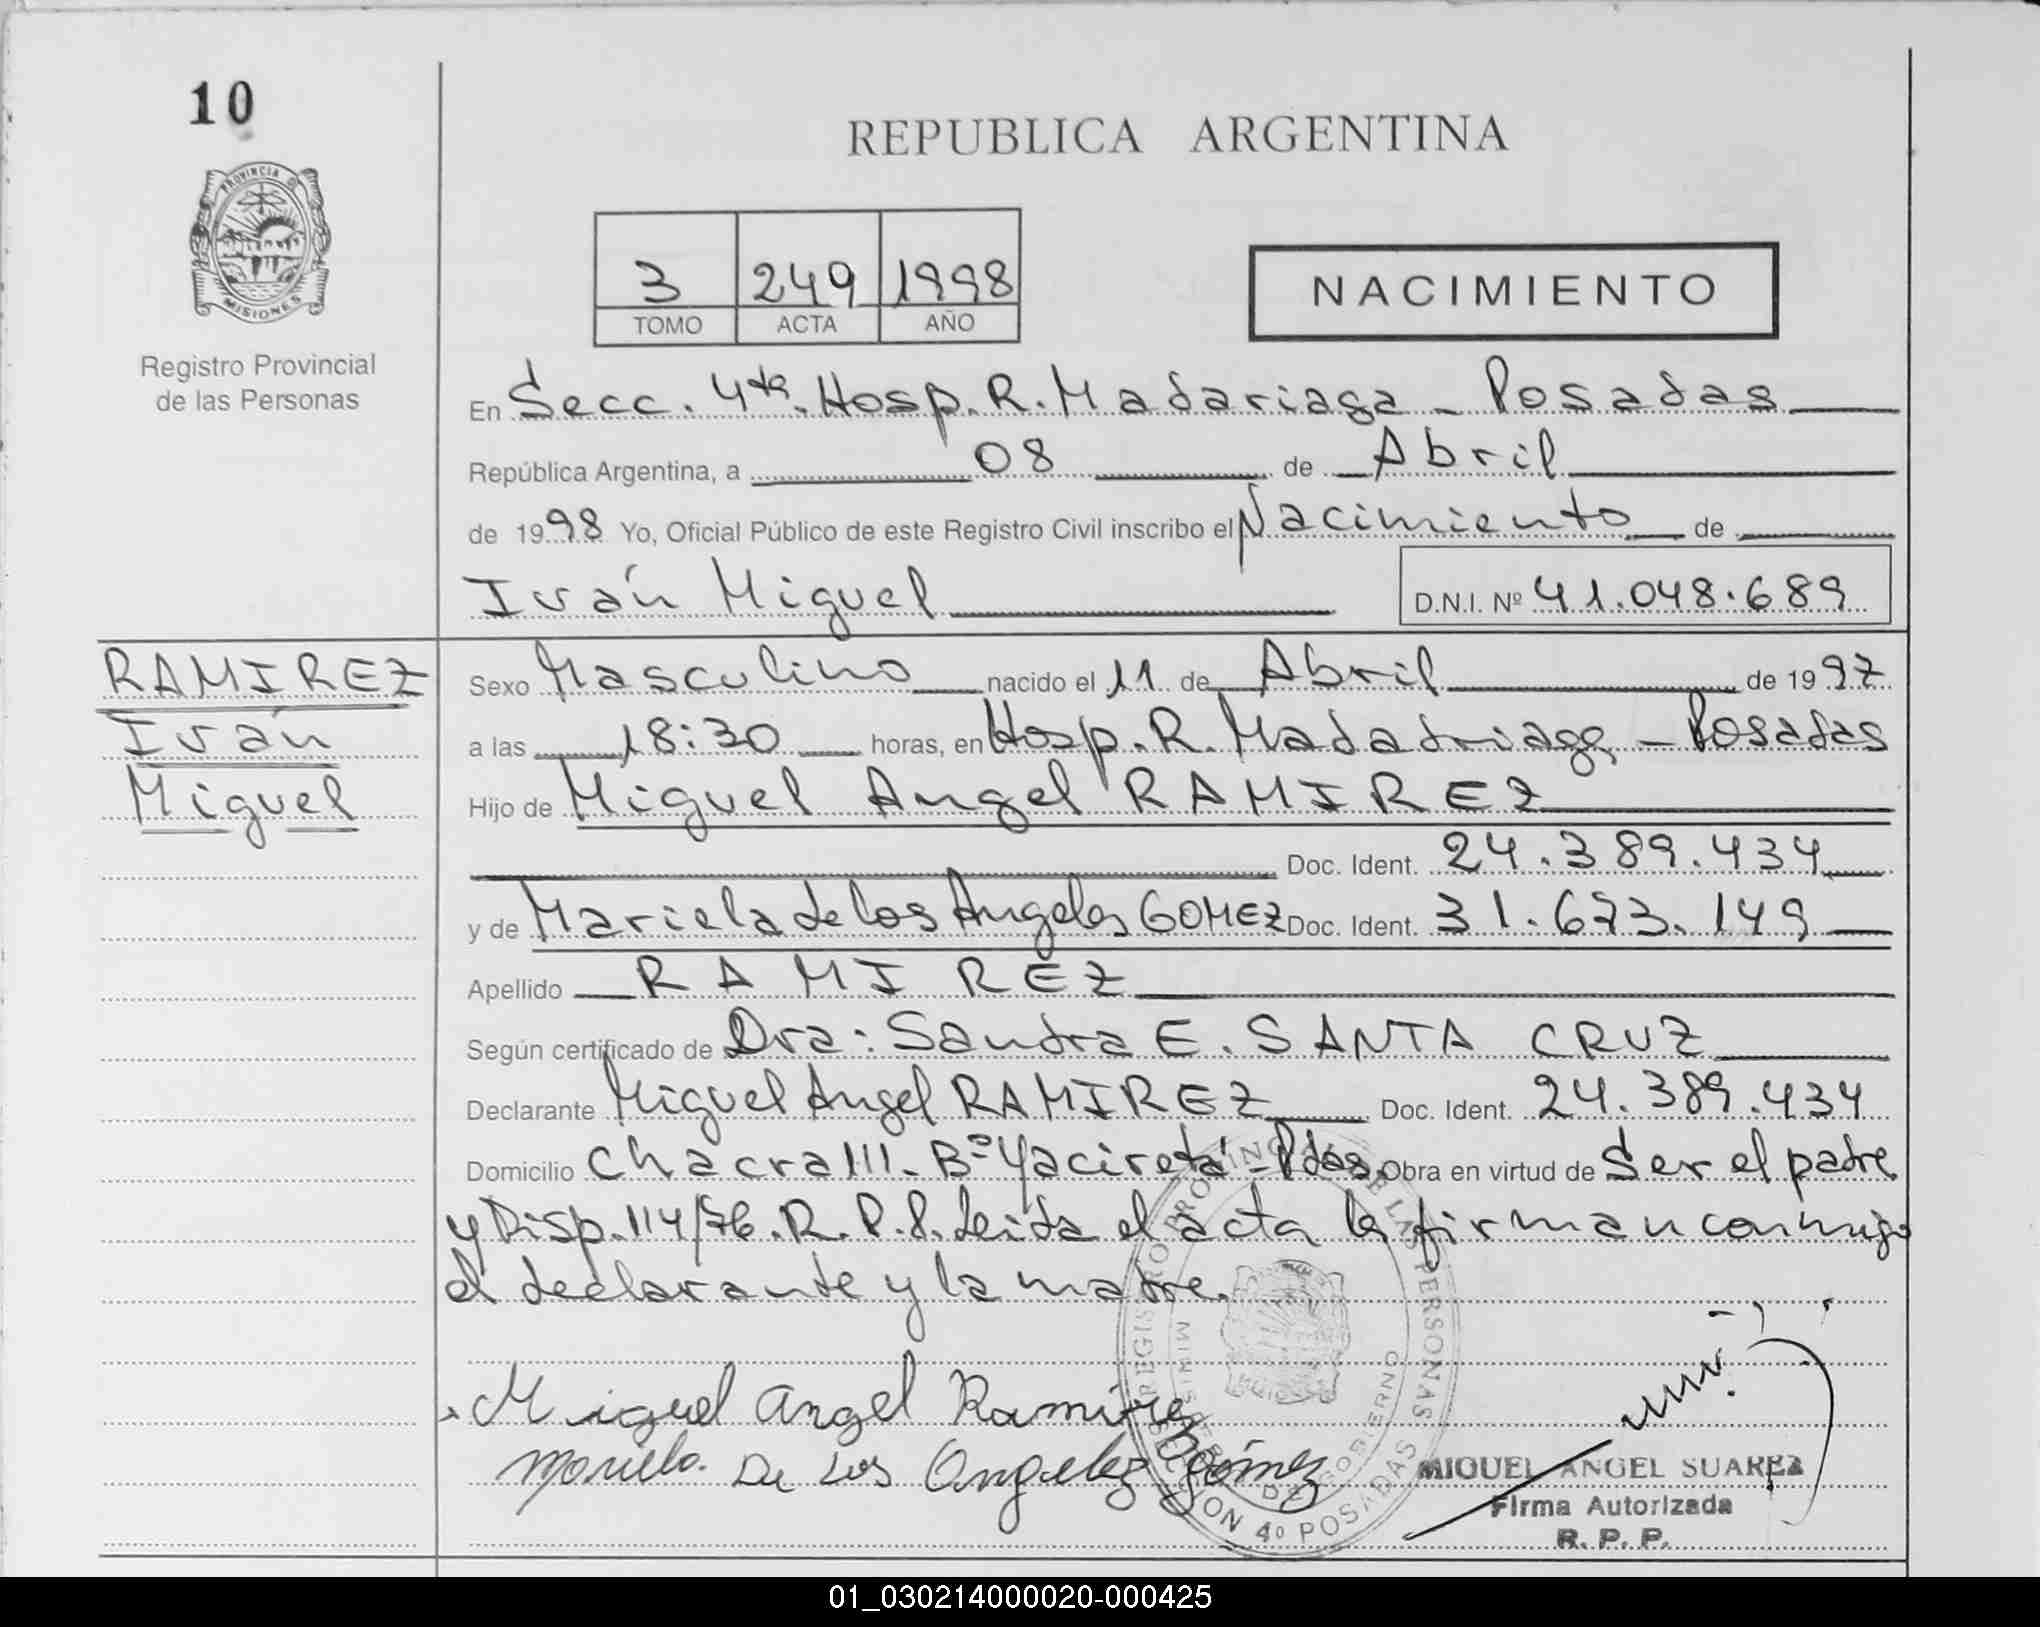 10
PROVINCIA D
MISIONES
Registro Provincial
de las Personas
REPUBLICA ARGENTINA
3 249 1998
TOMO ACTA AÑO
NACIMIENTO
En Secc. 4ta. Hosp. R. Madariaga - Posadas
República Argentina, a 08 de Abril
de 1998 Yo, Oficial Público de este Registro Civil inscribo el Nacimiento de
Iván Miguel D.N.I. Nº 41.048.689
RAMIREZ
Iván
Miguel
Sexo Masculino nacido el 11 de Abril de 1997
a las 18:30 horas, en Hosp. R. Madadriaga - Posadas
Hijo de Miguel Angel RAMIREZ
Doc. Ident. 24.389.434
y de Mariela de los Angeles GOMEZ Doc. Ident. 31.673.149
Apellido RAMIREZ
Según certificado de Dra: Sandra E. SANTA CRUZ
Declarante Miguel Angel RAMIREZ Doc. Ident. 24.389.434
Domicilio Chacra 111 - Bº Yacireta - Pdas Obra en virtud de Ser el padre
y Disp. 114/76. R. P. P. Leída el acta la firman conmigo
el declarante y la madre.
Miguel Angel Ramirez
Mariela De Los Angelez Gómez
REGISTRO PROVINCIAL DE LAS PERSONAS
MINISTERIO DE GOBIERNO
SECCION 4º POSADAS
MIGUEL ANGEL SUAREZ
Firma Autorizada
R. P. P.
01_030214000020-000425